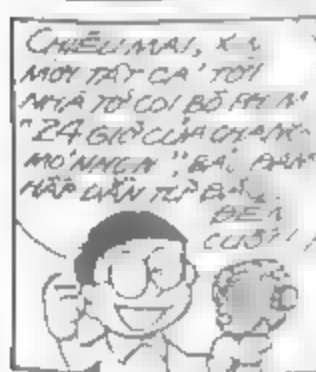 CHIỀU MAI, XIN
MỜI TẤT CẢ TỚI
NHÀ TỚ COI BỘ PHIM
"24 GIỜ CỦA CHÀNG
BẢO ĐẢM
HẤP DẪN TỪ ĐẦU
ĐẾN
CUỐI!